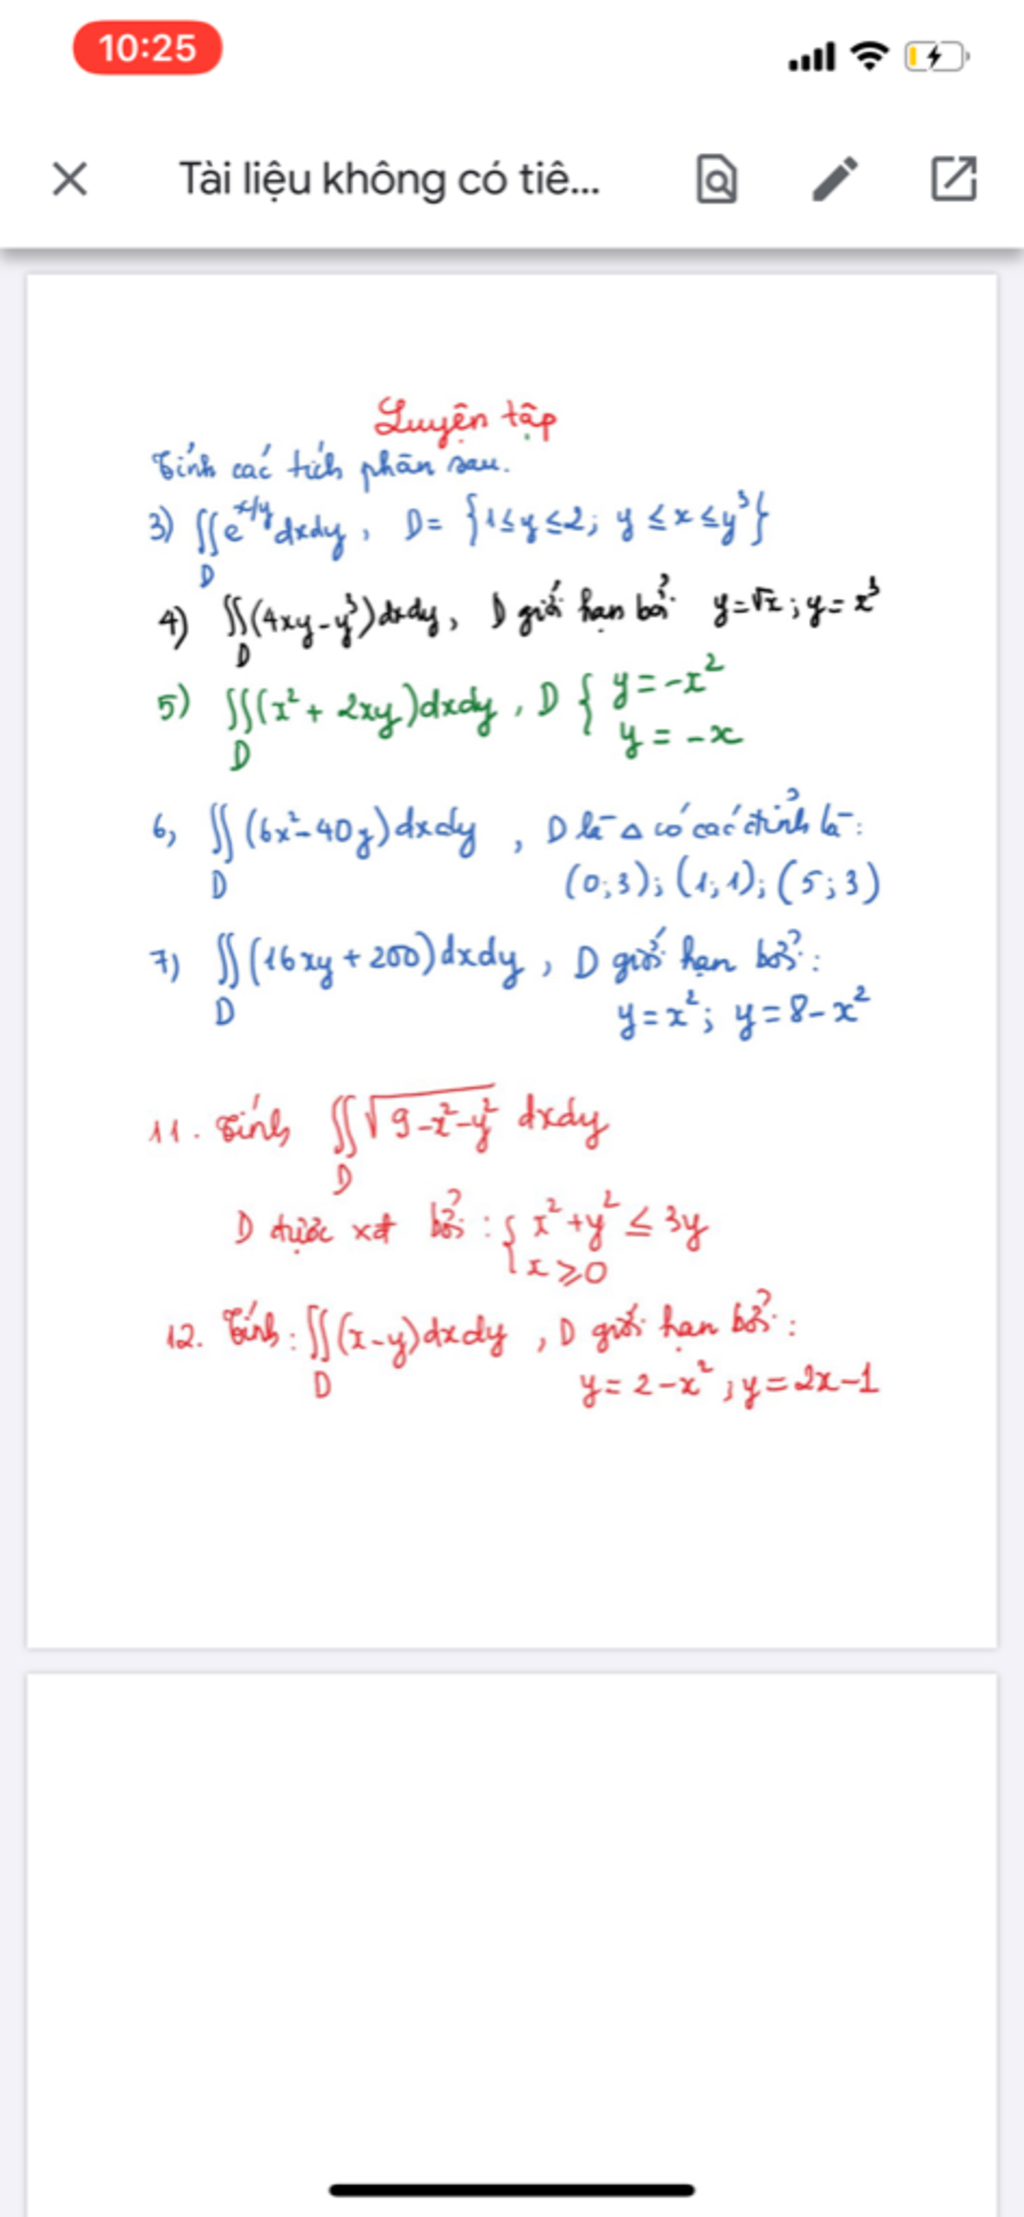 10:25
Tài liệu không có tiê...
Luyện tập
Tính các tích phân sau.
3) ∬e^{x/y} dxdy, D = {1≤y≤2; y ≤ x ≤ y³}
D
4) ∬(4xy-y³)dxdy, D giới hạn bởi y=√x; y=x³
D
5) ∬(x² + 2xy)dxdy, D { y = -x²
D y = -x
6, ∬(6x²-40y)dxdy, D là Δ có các đỉnh là:
D (0;3); (1;1); (5;3)
7) ∬(16xy + 200)dxdy, D giới hạn bởi:
D y = x²; y = 8-x²
11. Tính ∬√9-x²-y² dxdy
D
D được xđ bởi: { x²+y² ≤ 3y
x ≥ 0
12. Tính: ∬(x-y)dxdy, D giới hạn bởi:
D y = 2-x²; y = 2x-1